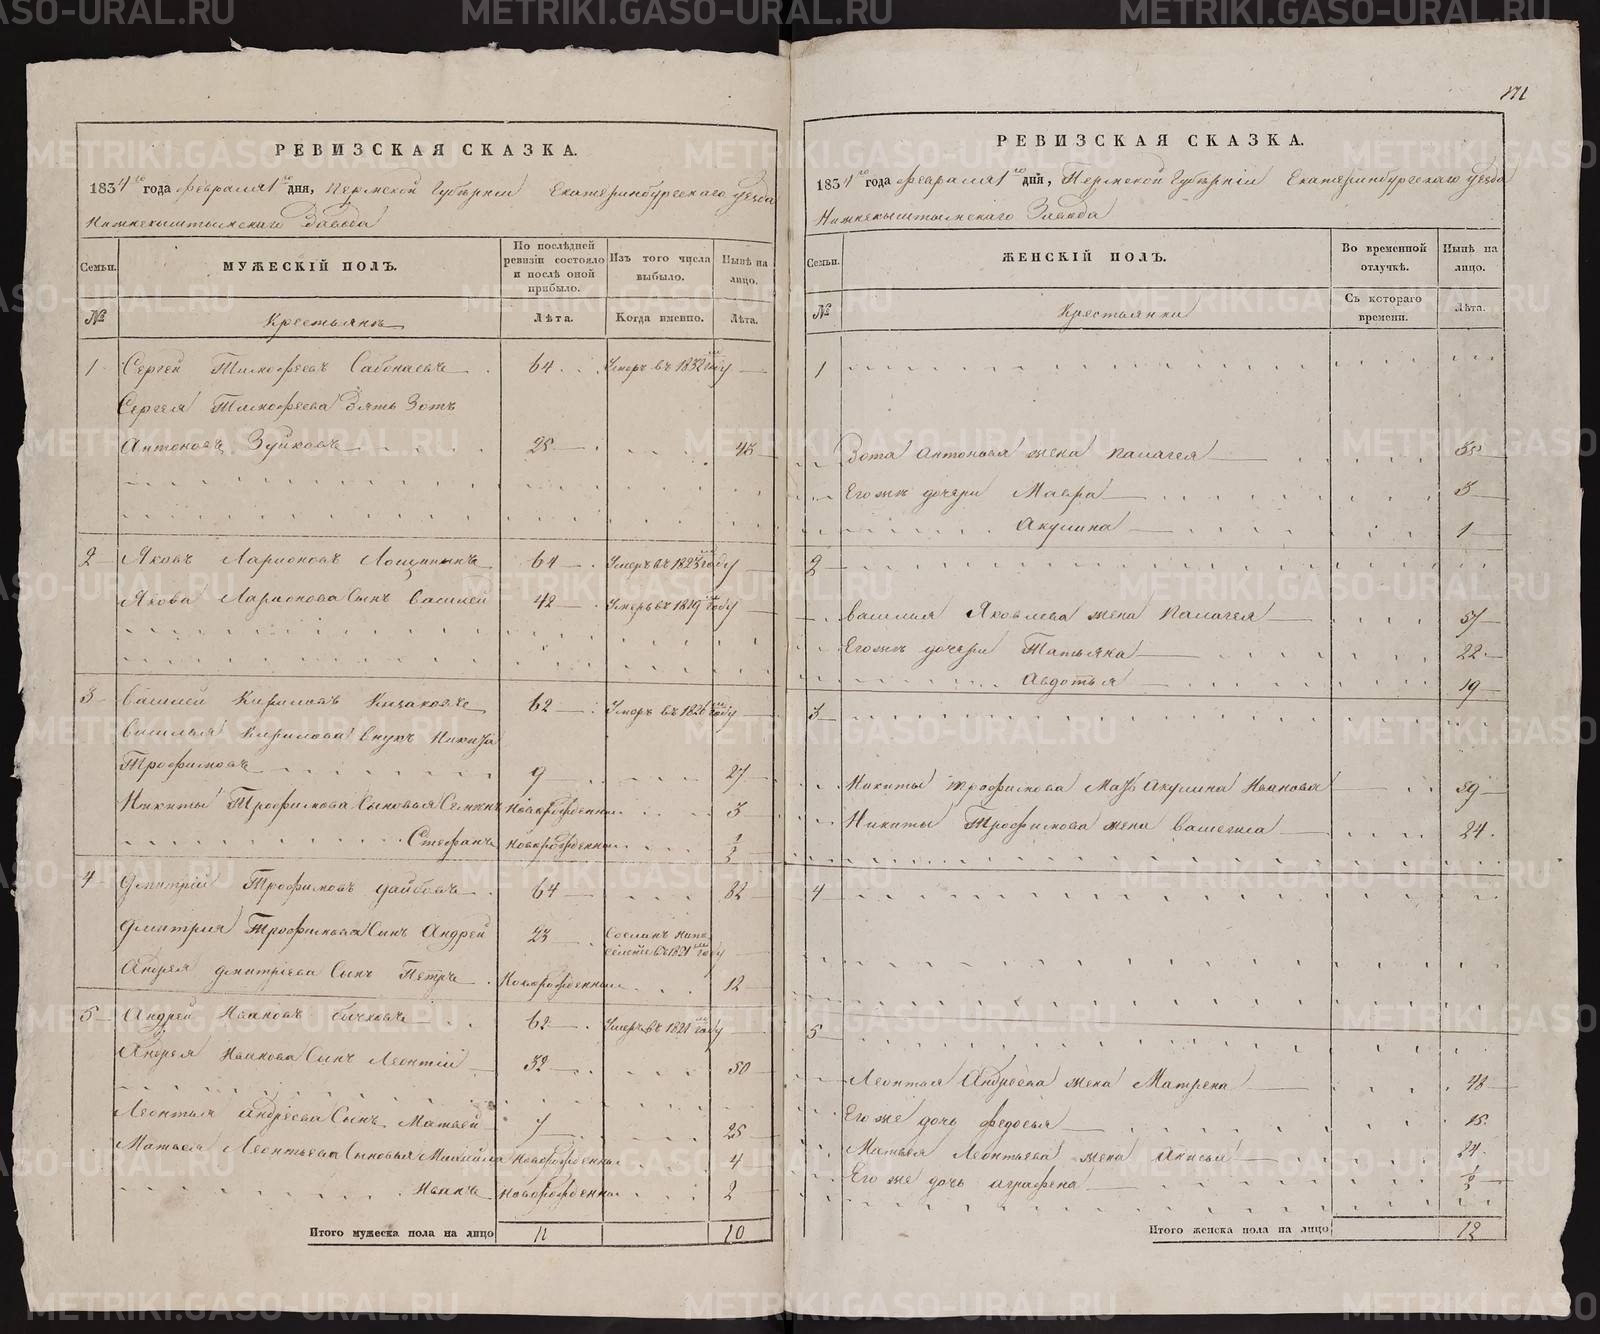 РЕВИЗСКАЯ СКАЗКА.
1834 го года февраля 1 го дня, Пермской Губѣрніи Екатеринбургскаго уезда
Нижнекыштымскаго Завода
Семьи. МУЖЕСКІЙ ПОЛЪ. По послѣдней ревизіи состояло и послѣ оной прибыло. Изъ того числа выбыло. Нынѣ на лицо.
№ Крестьянъ Лѣта. Когда именно. Лѣта.
1 Сергей Тимофеевъ 64 Умеръ въ 1832 году
Сергея Тимофеева Зять Зотъ
Антоновъ Зуйковъ 25 43
2 Яковъ Ларионовъ 64 Умеръ въ 1823 году
Якова Ларионова Сынъ Василей 42 Умеръ въ 1819 году
3 Василей Кириловъ 62 Умеръ въ 1826 году
Василья Кирилова внукъ Никита
Трофимовъ 9 27
Никиты Трофимова Сыновья Семенъ Новорожденныи 3
Стефанъ Новорожденныи 1/2
4 Дмитрій Трофимовъ 64 82
Дмитрия Трофимова Сынъ Андрей 23 Сосланъ на поселение въ 1821 году
Андрея Дмитріева Сынъ Петръ Новорожденныи 12
5 Андрей Ивановъ Бычковъ 62 Умеръ въ 1821 году
Андрея Иванова Сынъ Леонтій 32 50
Леонтья Андреева Сынъ Матвей 7 25
Матвея Леонтьева Сыновья Михайла Новорожденныи 4
Иванъ Новорожденныи 2
Итого мужеска пола на лицо 11 10
171
РЕВИЗСКАЯ СКАЗКА.
1834 го года февраля 1 го дня, Пермской Губѣрніи Екатеринбургскаго уезда
Нижнекыштымскаго Завода
Семьи. ЖЕНСКІЙ ПОЛЪ. Во временной отлучкѣ. Нынѣ на лицо.
№ Крестьянки Съ котораго времени. Лѣта.
1
Зота Антонова жена Палагея 35
Его жъ дочери Мавра 3
Акулина 1
2
Василья Яковлева жена Палагея 57
Его жъ дочери Татьяна 22
Авдотья 19
3
Никиты Трофимова Мать Акулина Иванова 59
Никиты Трофимова жена Василиса 24
4
5
Леонтья Андреева жена Матрена 48
Его же дочь Федосья 15
Матвея Леонтьева жена Анисья 24
Его же дочь Аграфена 1/2
Итого женска пола на лицо 12
METRIKI.GASO-URAL.RU